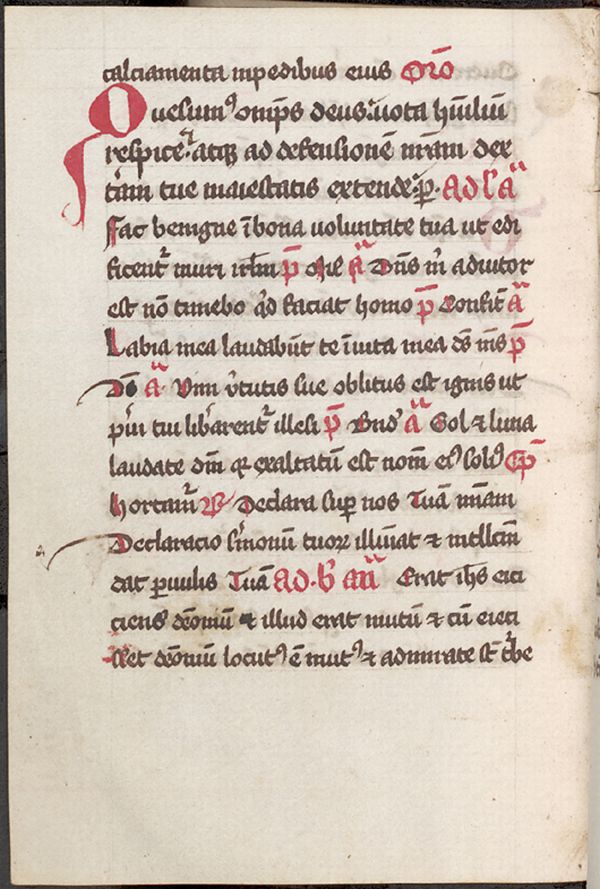 calciamenta inpedibus eius Orō
Quesumꝰ omp̄s deus uota hūiliū
respice atqꝫ ad defensionē nr̄am dex
t̄am tue maiestatis extende p̄ ad l a
Fac benigne ī bona uoluntate tua ut edi
ficent᷑ muri irl̄m p̄ a Dn̄s m̄ adiutor
est nō timebo qͥd faciat homo p̄ Confit̄ a
Labia mea laudabūt te ī uita mea ds̄ m̄s p̄
Ds̄ a Vim v̄tutis sue oblitus est ignis ut
pu̅i tui lib̄arent᷑ illesi p̄ Bn̄d a Sol ⁊ luna
laudate dm̄ qꝛ exaltatū est nom̄ eiꝰ soliꝰ Cp̄
hortam᷑ ℟ Declara sup̄ nos Tuā mīam
Declaracio s̄monū tuoꝝ illūiat ⁊ intllcm̄
dat p̄uulis Tuā ad b an̄ Erat ih̄s eici
ciens dēoniū ⁊ illud erat mutū ⁊ cū eieci
sset dēoniū locutꝰ ē mutꝰ ⁊ admirate st̄ t̄be